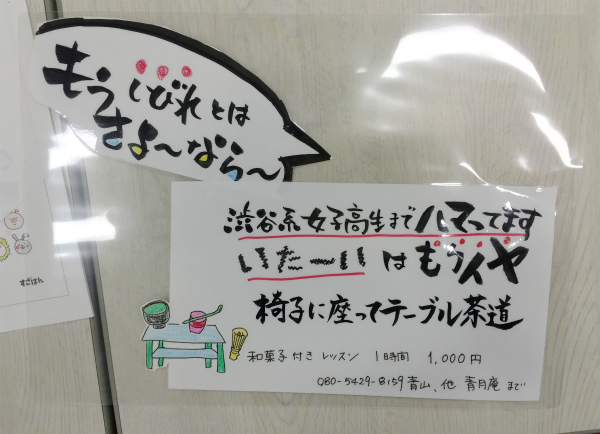 もう しびれとは
さよ～なら～
渋谷系女子高生までハマってます
いたーいはもうイヤ
椅子に座ってテーブル茶道
和菓子付きレッスン 1時間 1,000円
080-5429-8159 青山、他 青月庵まで
すごはん